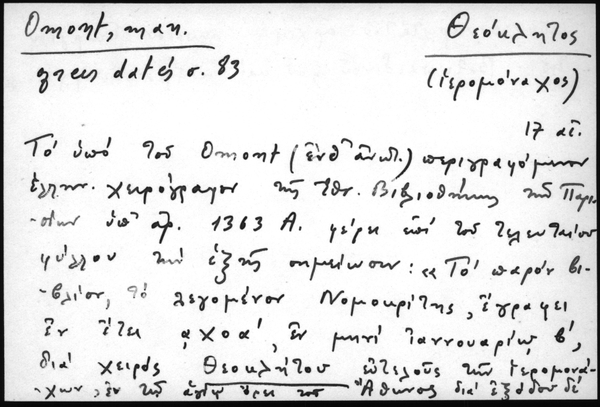 Omont, man.
grecs datés σ. 83
Θεόκλητος
(ἱερομόναχος)
17 αἰ.
Τό ὑπό τοῦ Omont (ἔνθ' ἀνωτ.) περιγραφόμενον
ἑλλην. χειρόγραφον τῆς Ἐθν. Βιβλιοθήκης τῶν Παρι-
σίων ὑπ' ἀρ. 1363 Α. φέρει ἐπί τοῦ τελευταίου
φύλλου τήν ἑξῆς σημείωσιν: «Τό παρόν βι-
βλίον, τό λεγομένον Νομοκρίτης, ἔγραφει
ἐν ἔτει ͵αχοα', ἐν μηνί Ἰαννουαρίῳ β',
διά χειρός Θεοκλήτου εὐτελοῦς τῶν Ἱερομονά-
χων, ἐν τῆς ἁγίῳ ὄρει τοῦ Ἄθωνος διά ἐξόδου δέ